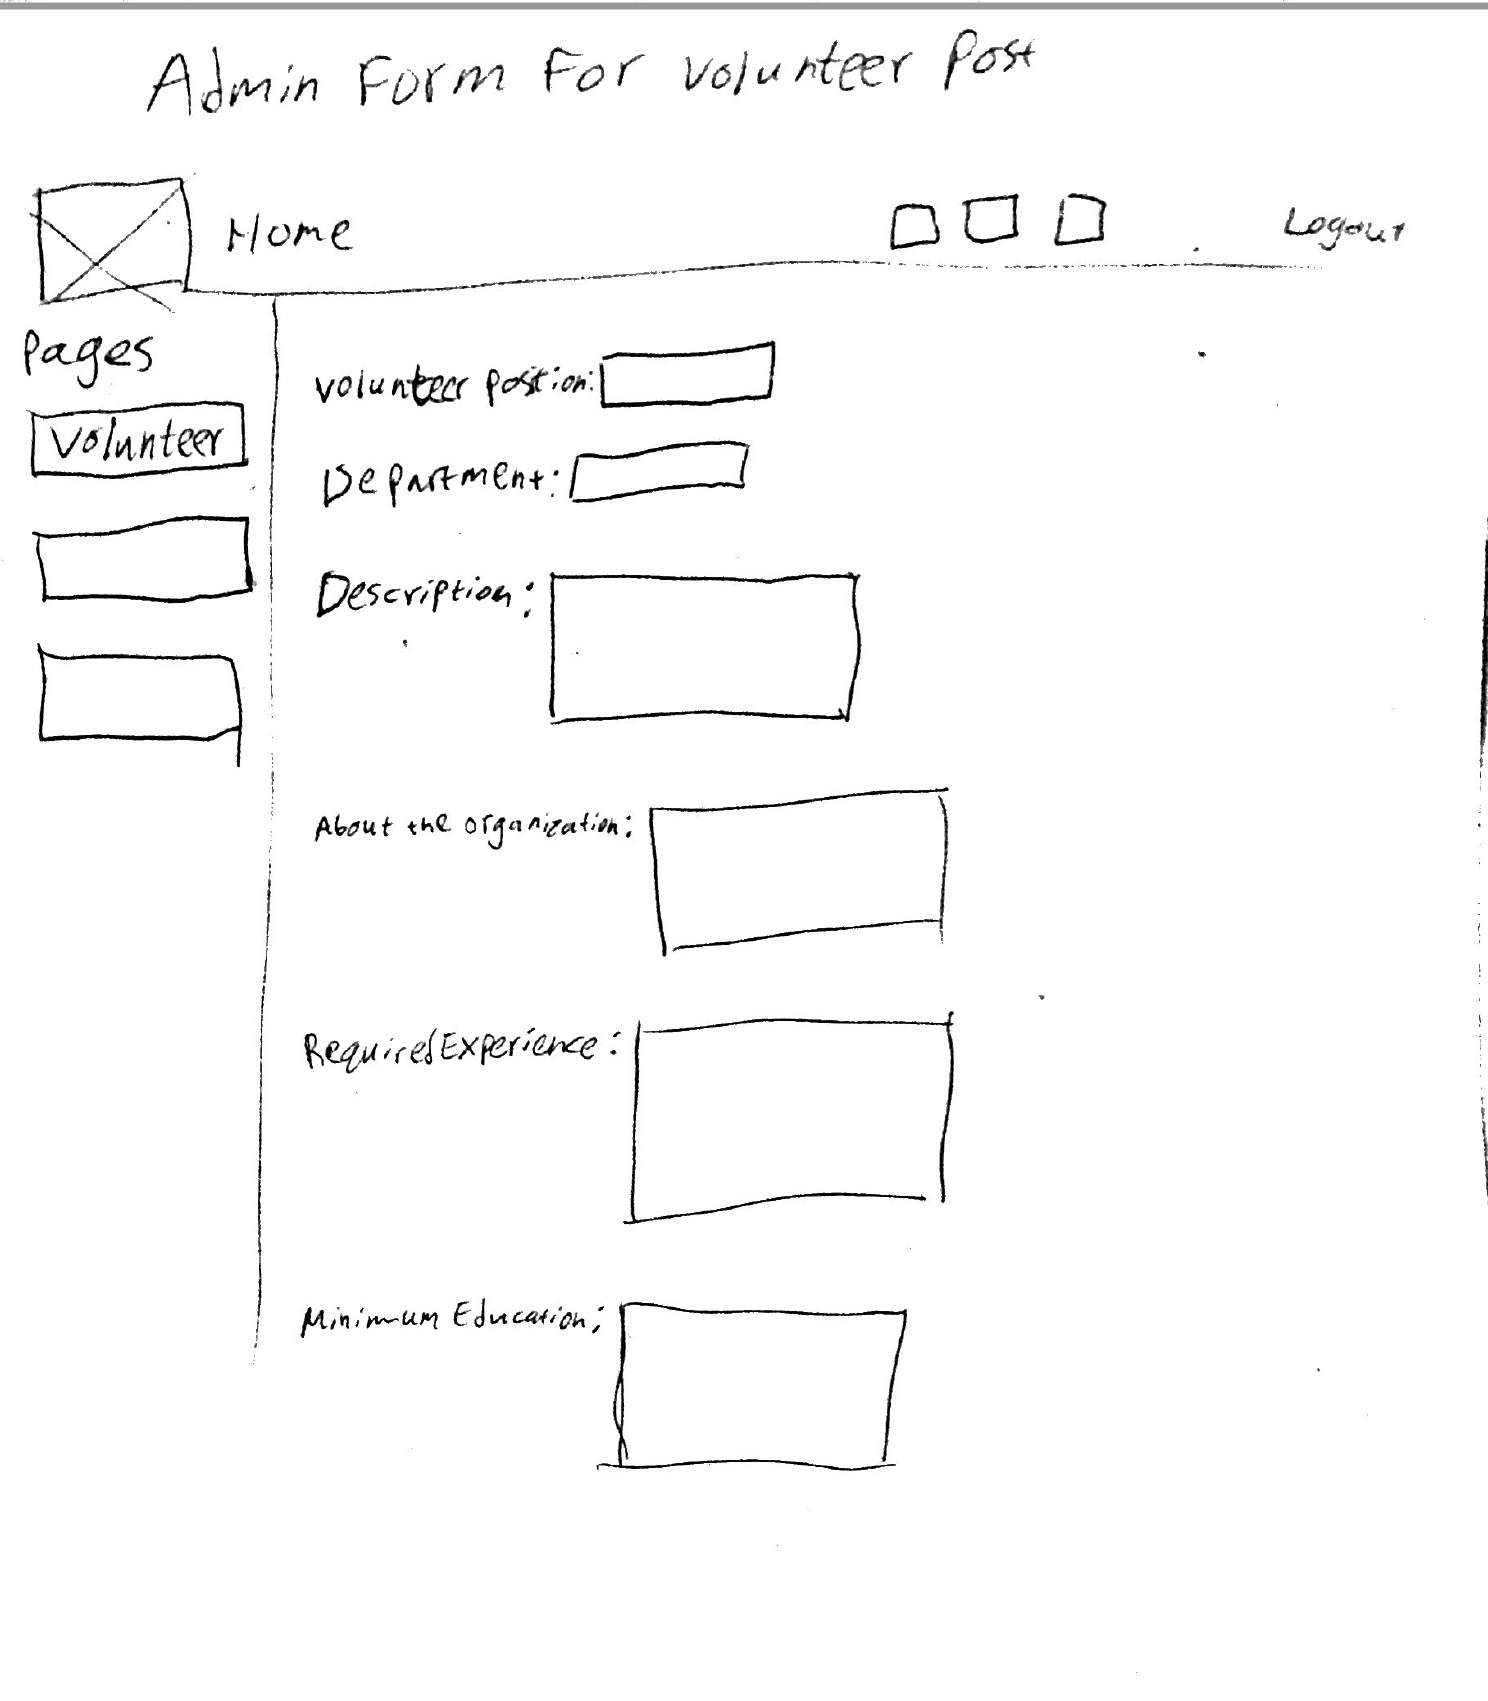 Admin Form For Volunteer Post
Home
Logout
Pages
Volunteer
Volunteer Position:
Department:
Description:
About the organization:
Required Experience:
Minimum Education: